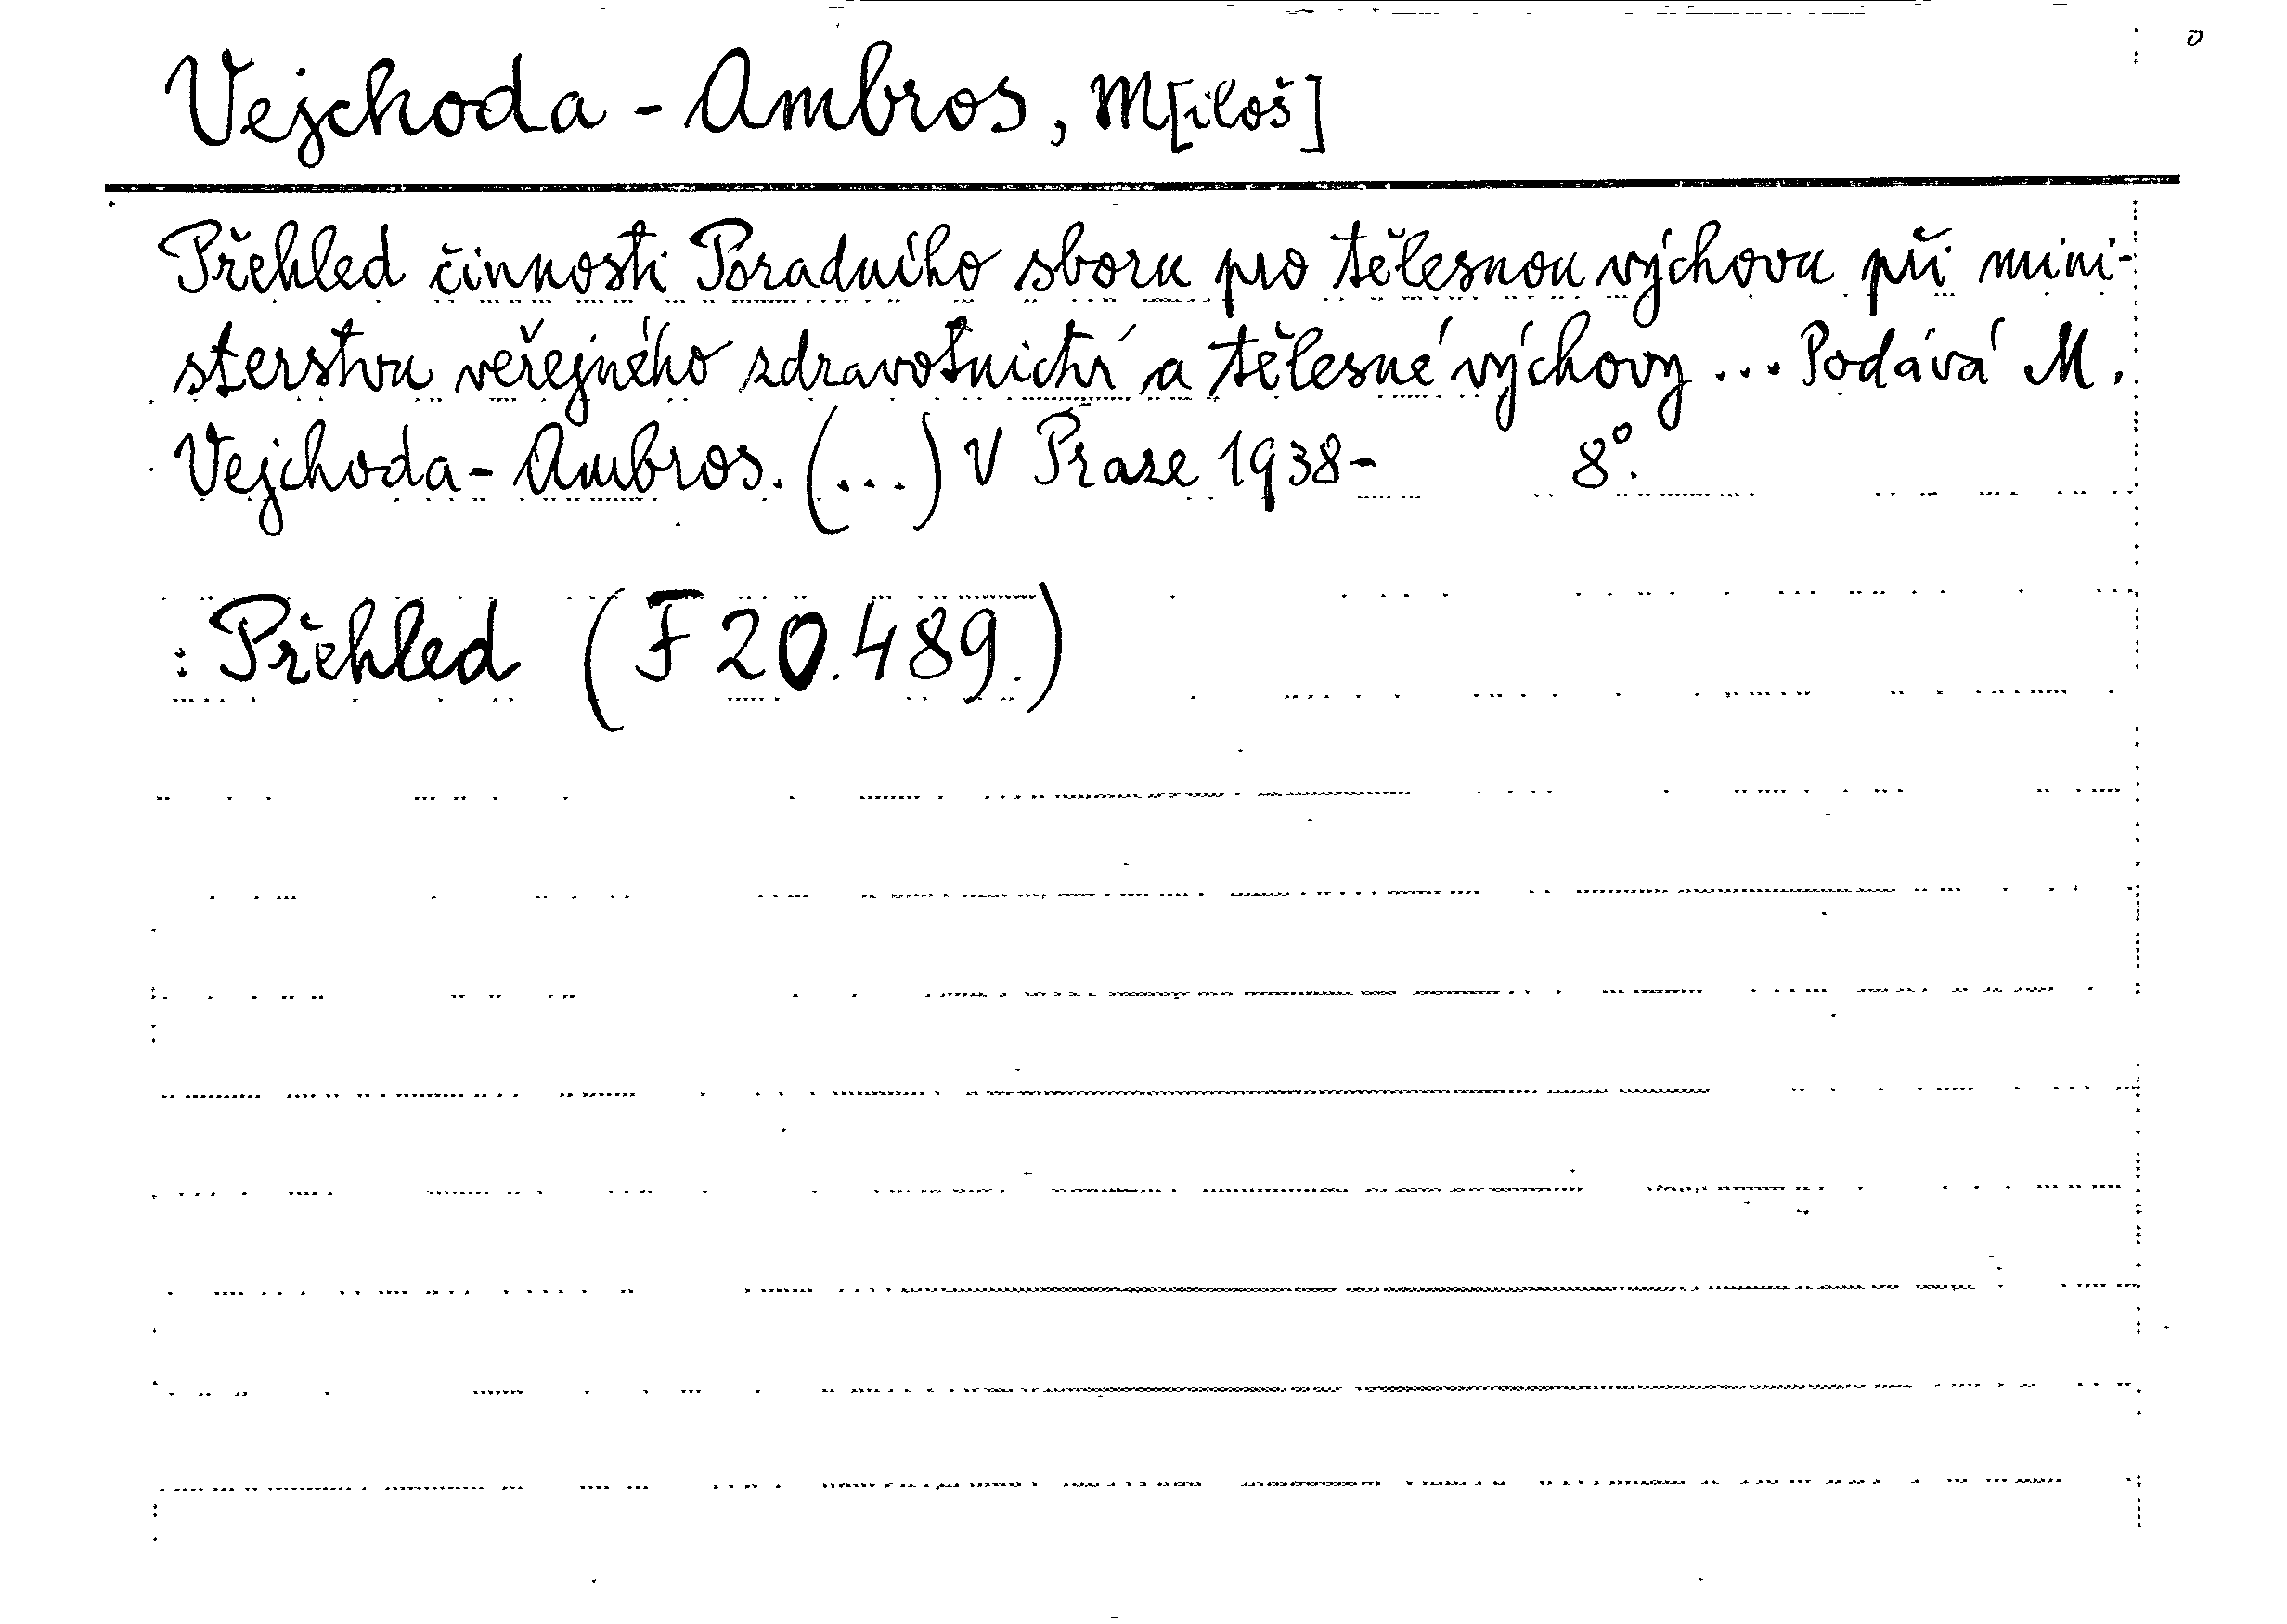 Vejchoda - Ambros, M[iloš]
Přehled činnosti Poradního sboru pro tělesnou výchovu při mini-
sterstvu veřejného zdravotnictví a tělesné výchovy ... Podává M.
Vejchoda - Ambros. (...) V Praze 1938- 8°.
: Přehled (F 20.489.)